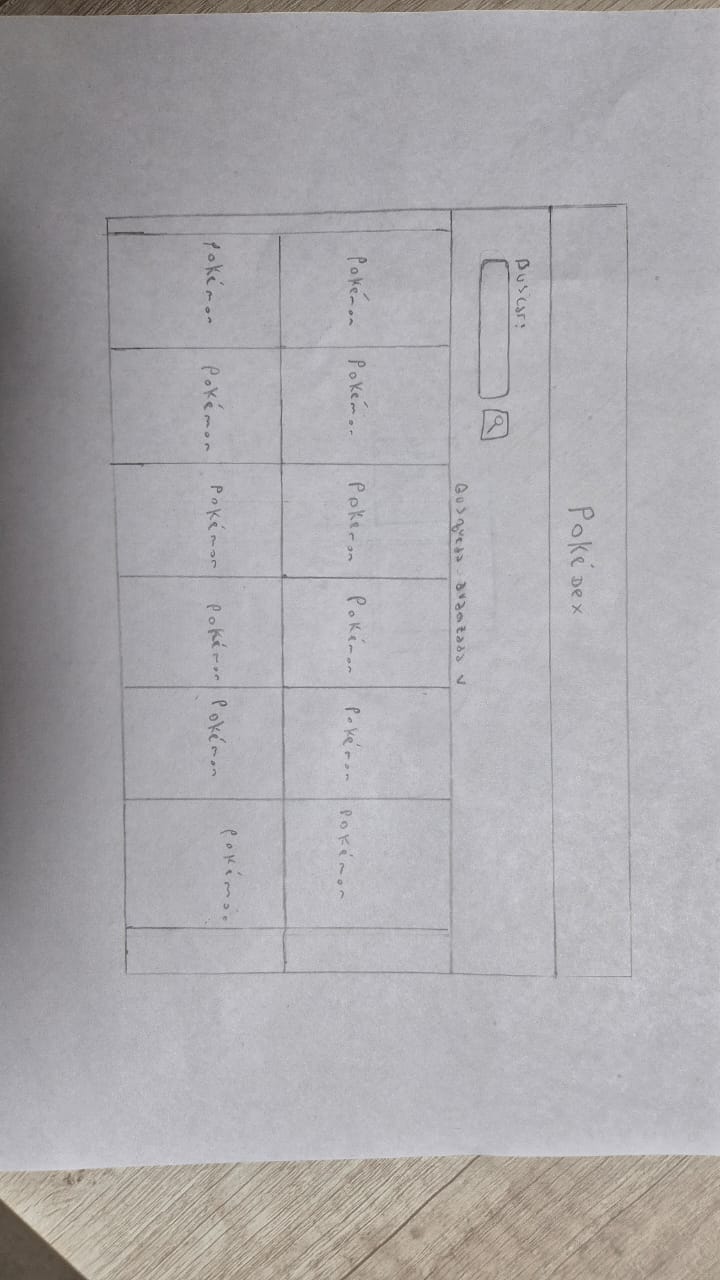 Pokédex
Buscar:
Busqueda avanzada v
Pokémon Pokémon Pokémon Pokémon Pokémon Pokémon
Pokémon Pokémon Pokémon Pokémon Pokémon Pokémon